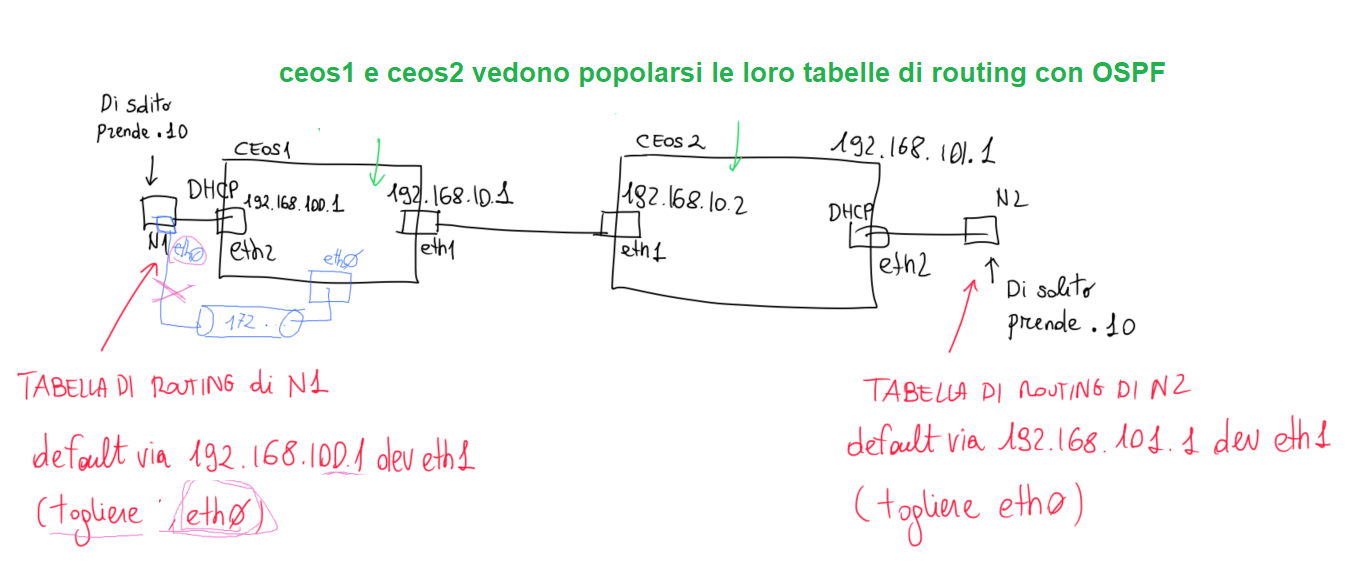 ceos1 e ceos2 vedono popolarsi le loro tabelle di routing con OSPF
Di solito
prende .10
CEOS1
DHCP
192.168.100.1
192.168.10.1
N1
eth0
eth2
eth0
eth1
172..
CEOS2
192.168.101.1
192.168.10.2
DHCP
N2
eth1
eth2
Di solito
prende .10
TABELLA DI ROUTING di N1
default via 192.168.100.1 dev eth1
(togliere eth0)
TABELLA DI ROUTING DI N2
default via 192.168.101.1 dev eth1
(togliere eth0)